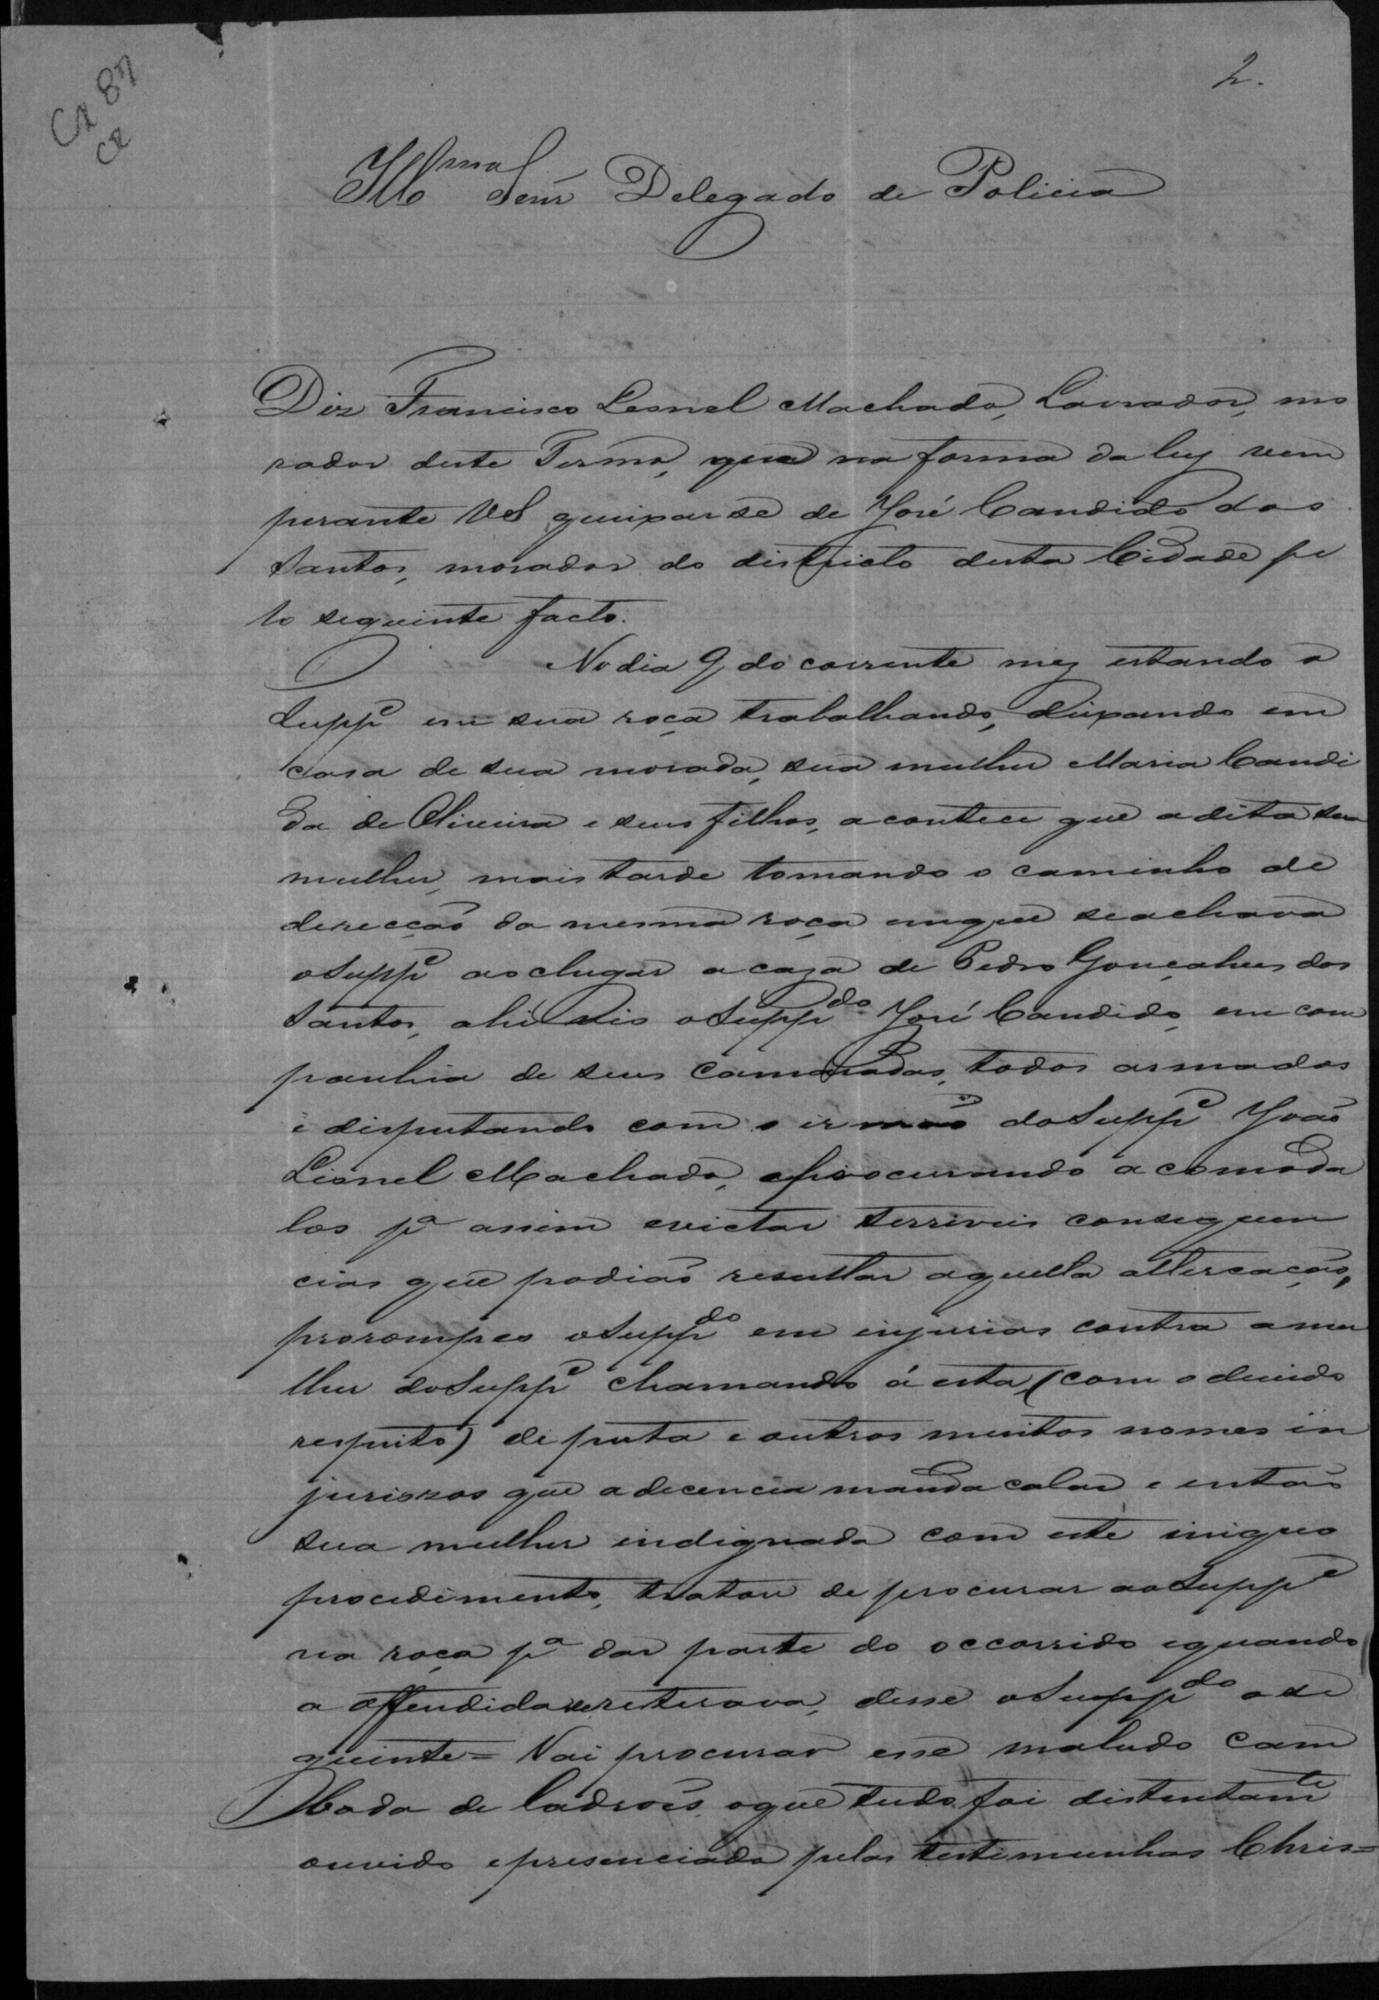 Cx 87
CR
2.
Illmo Senr Delegado de Policia
Diz Francisco Leonel Machado, Lavrador, mo
rador deste Termo, que na forma da ley vem
perante VS queixar se de José Candido dos
Santos, morador do districto desta Cidade pe
lo seguinte facto.
No dia 9 do corrente mez estando o
Suppe em sua roça trabalhando, deixando em
casa de sua morada, sua mulher Maria Candi
da de Oliveira e seus filhos, acontece que a dita sua
mulher, mais tarde tomando o caminho de
direcção da mesma roça em que se achava
o Suppe ao chegar a caza de Pedro Gonçalves dos
Santos, ahi vio o Suppdo José Candido, em com
panhia de seus camaradas, todos armados
e disputando com o irmão do Suppe João
Lionel Machado, e procurando acomoda
los pa assim evictar terriveis consequen
cias que podião resultar aquella altercação,
prorompeo o Suppdo em injurias contra a mu
lher do Suppe chamando á esta, (com o devido
respeito) de puta e outros muitos nomes in
juriozos que a decencia manda calar e então
sua mulher indignada com este iniquo
procedimento, tratou de procurar ao Suppe
na roça pa dar parte do occorrido e quando
a offendida se reterava, disse o Suppdo o se
guinte = Vai procurar esse maludo cam
bada de ladroẽs, o que tudo foi distintamte
ouvido e presenciado pelas testimunhas Chris=